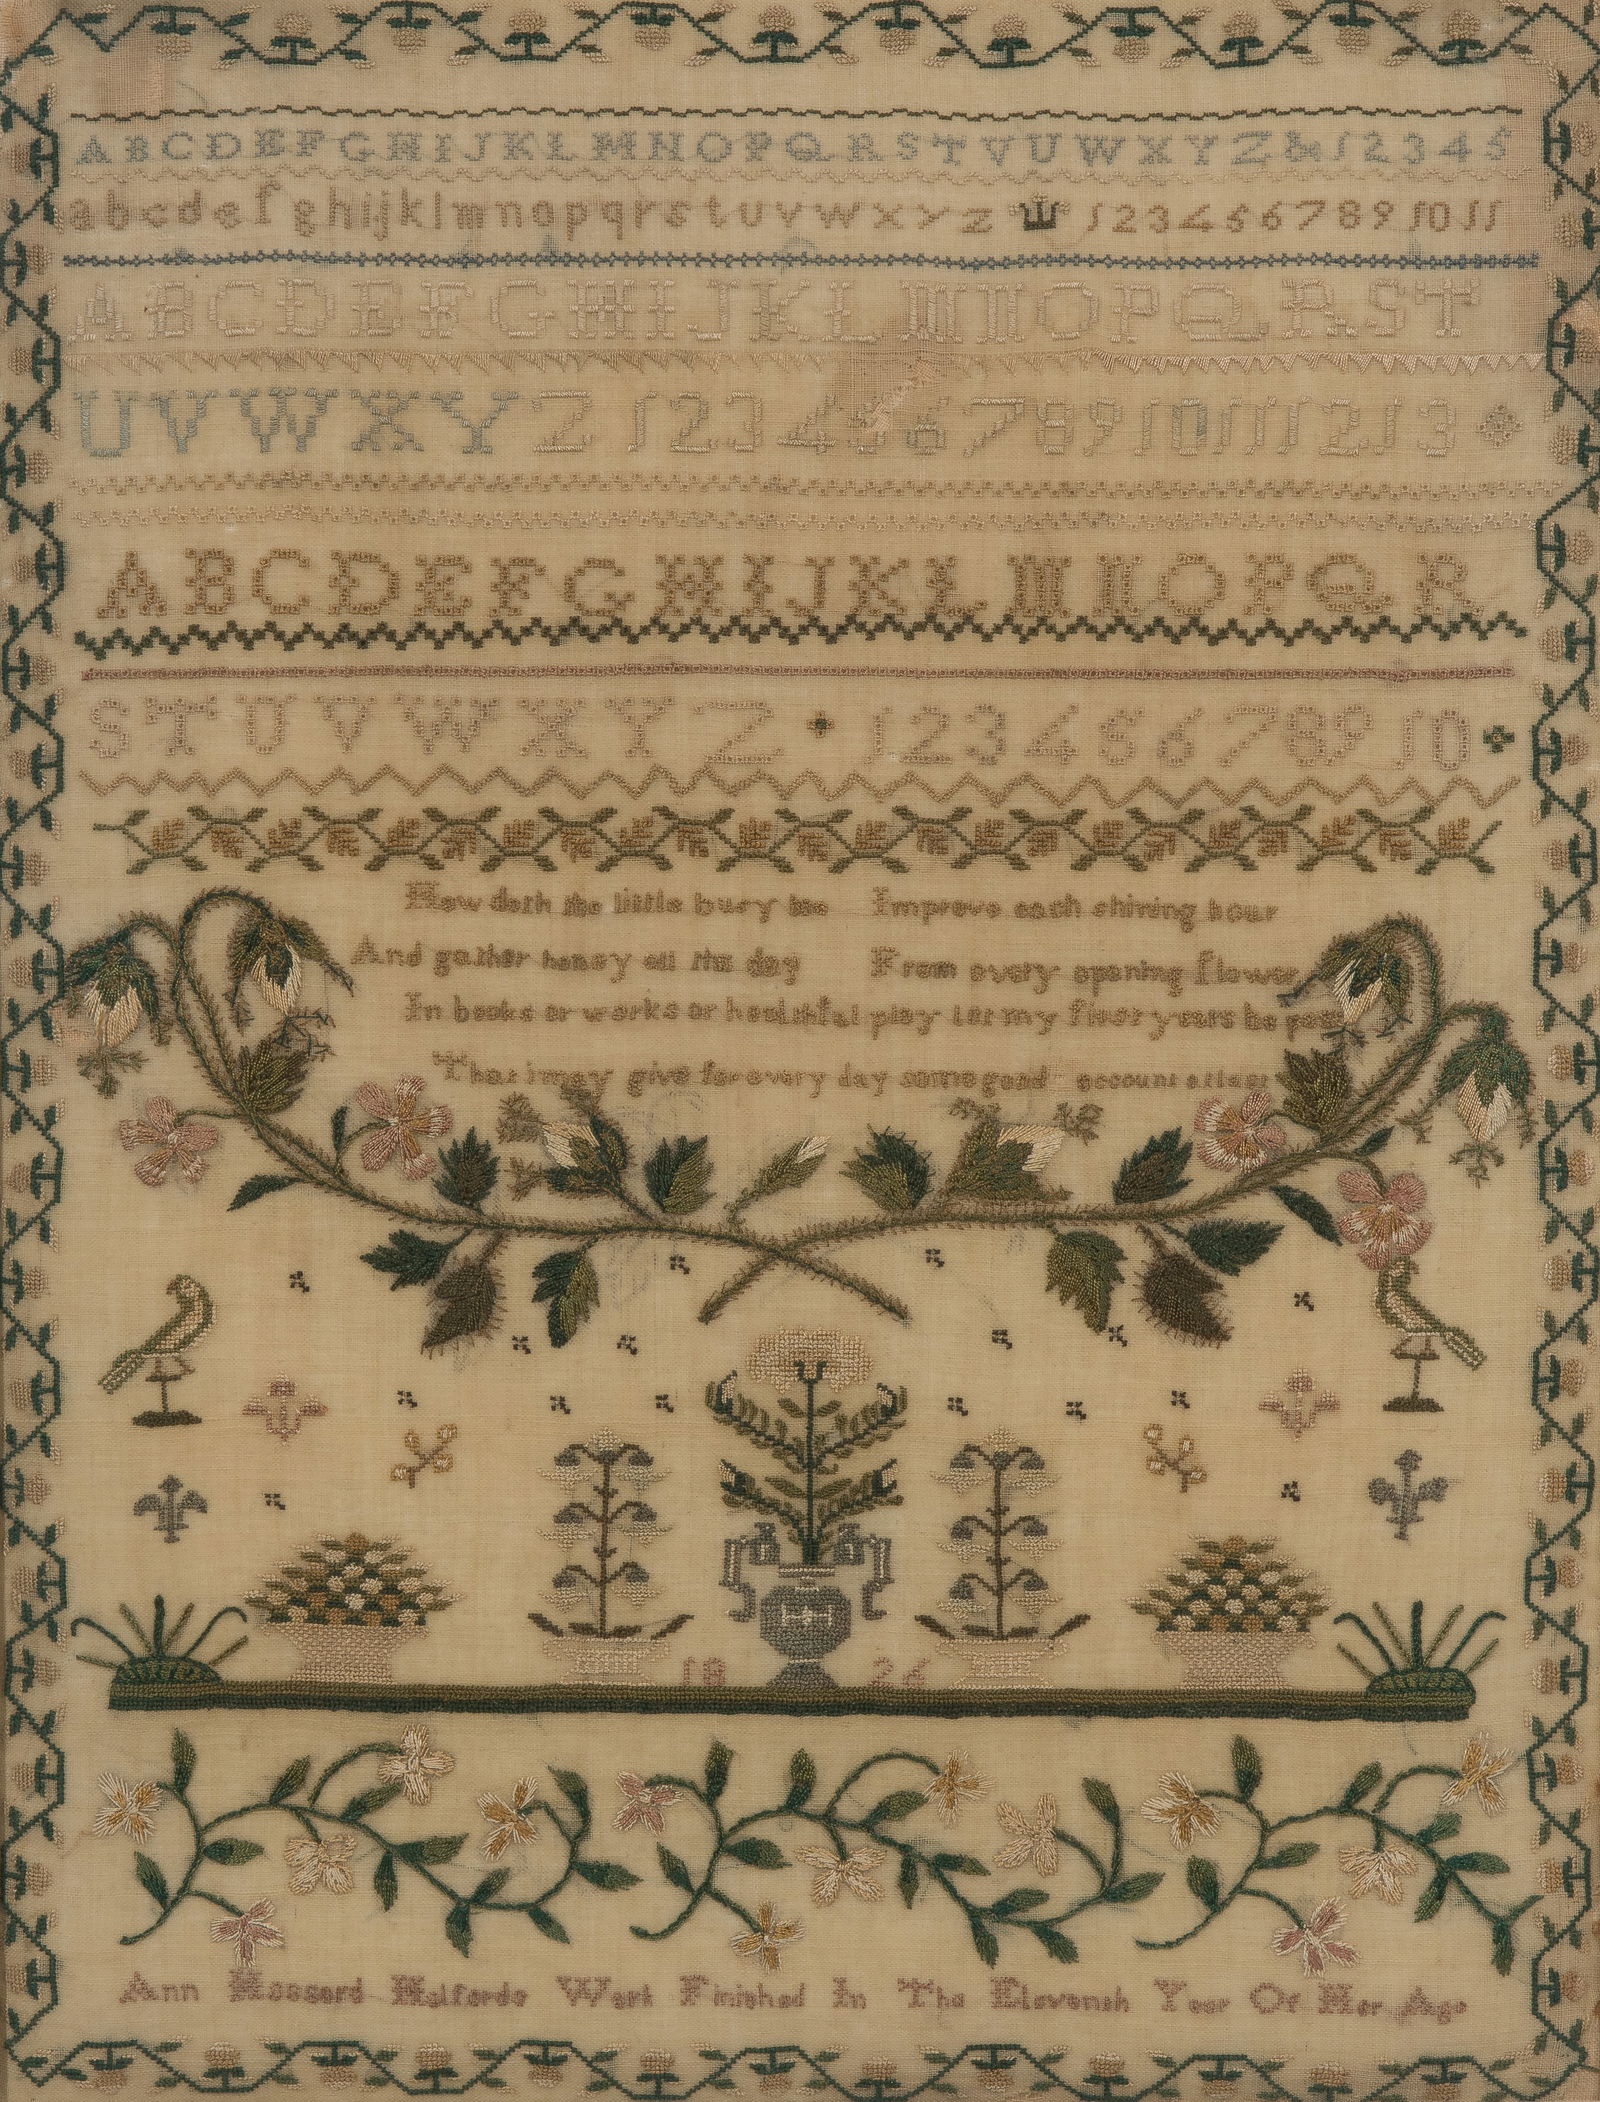 ABCDEFGHIJKLMNOPQRSTVUWXYZ& 12345
abcdefghijklmnopqrstuvwxyz 1234567891011
ABCDEFGHIJKLMNOPQRST
UVWXYZ12345678910111213
ABCDEFGHIJKLMNOPQR
STUVWXYZ 12345678910
How doth the little busy bee Improve each shining hour
And gather honey all the day From every opening flower
In books or works or healthful play Let my first years be past
That I may give for every day some good account at last
HH
18 26
Ann Hassard Halfords Work Finished In The Eleventh Year Of Her Age